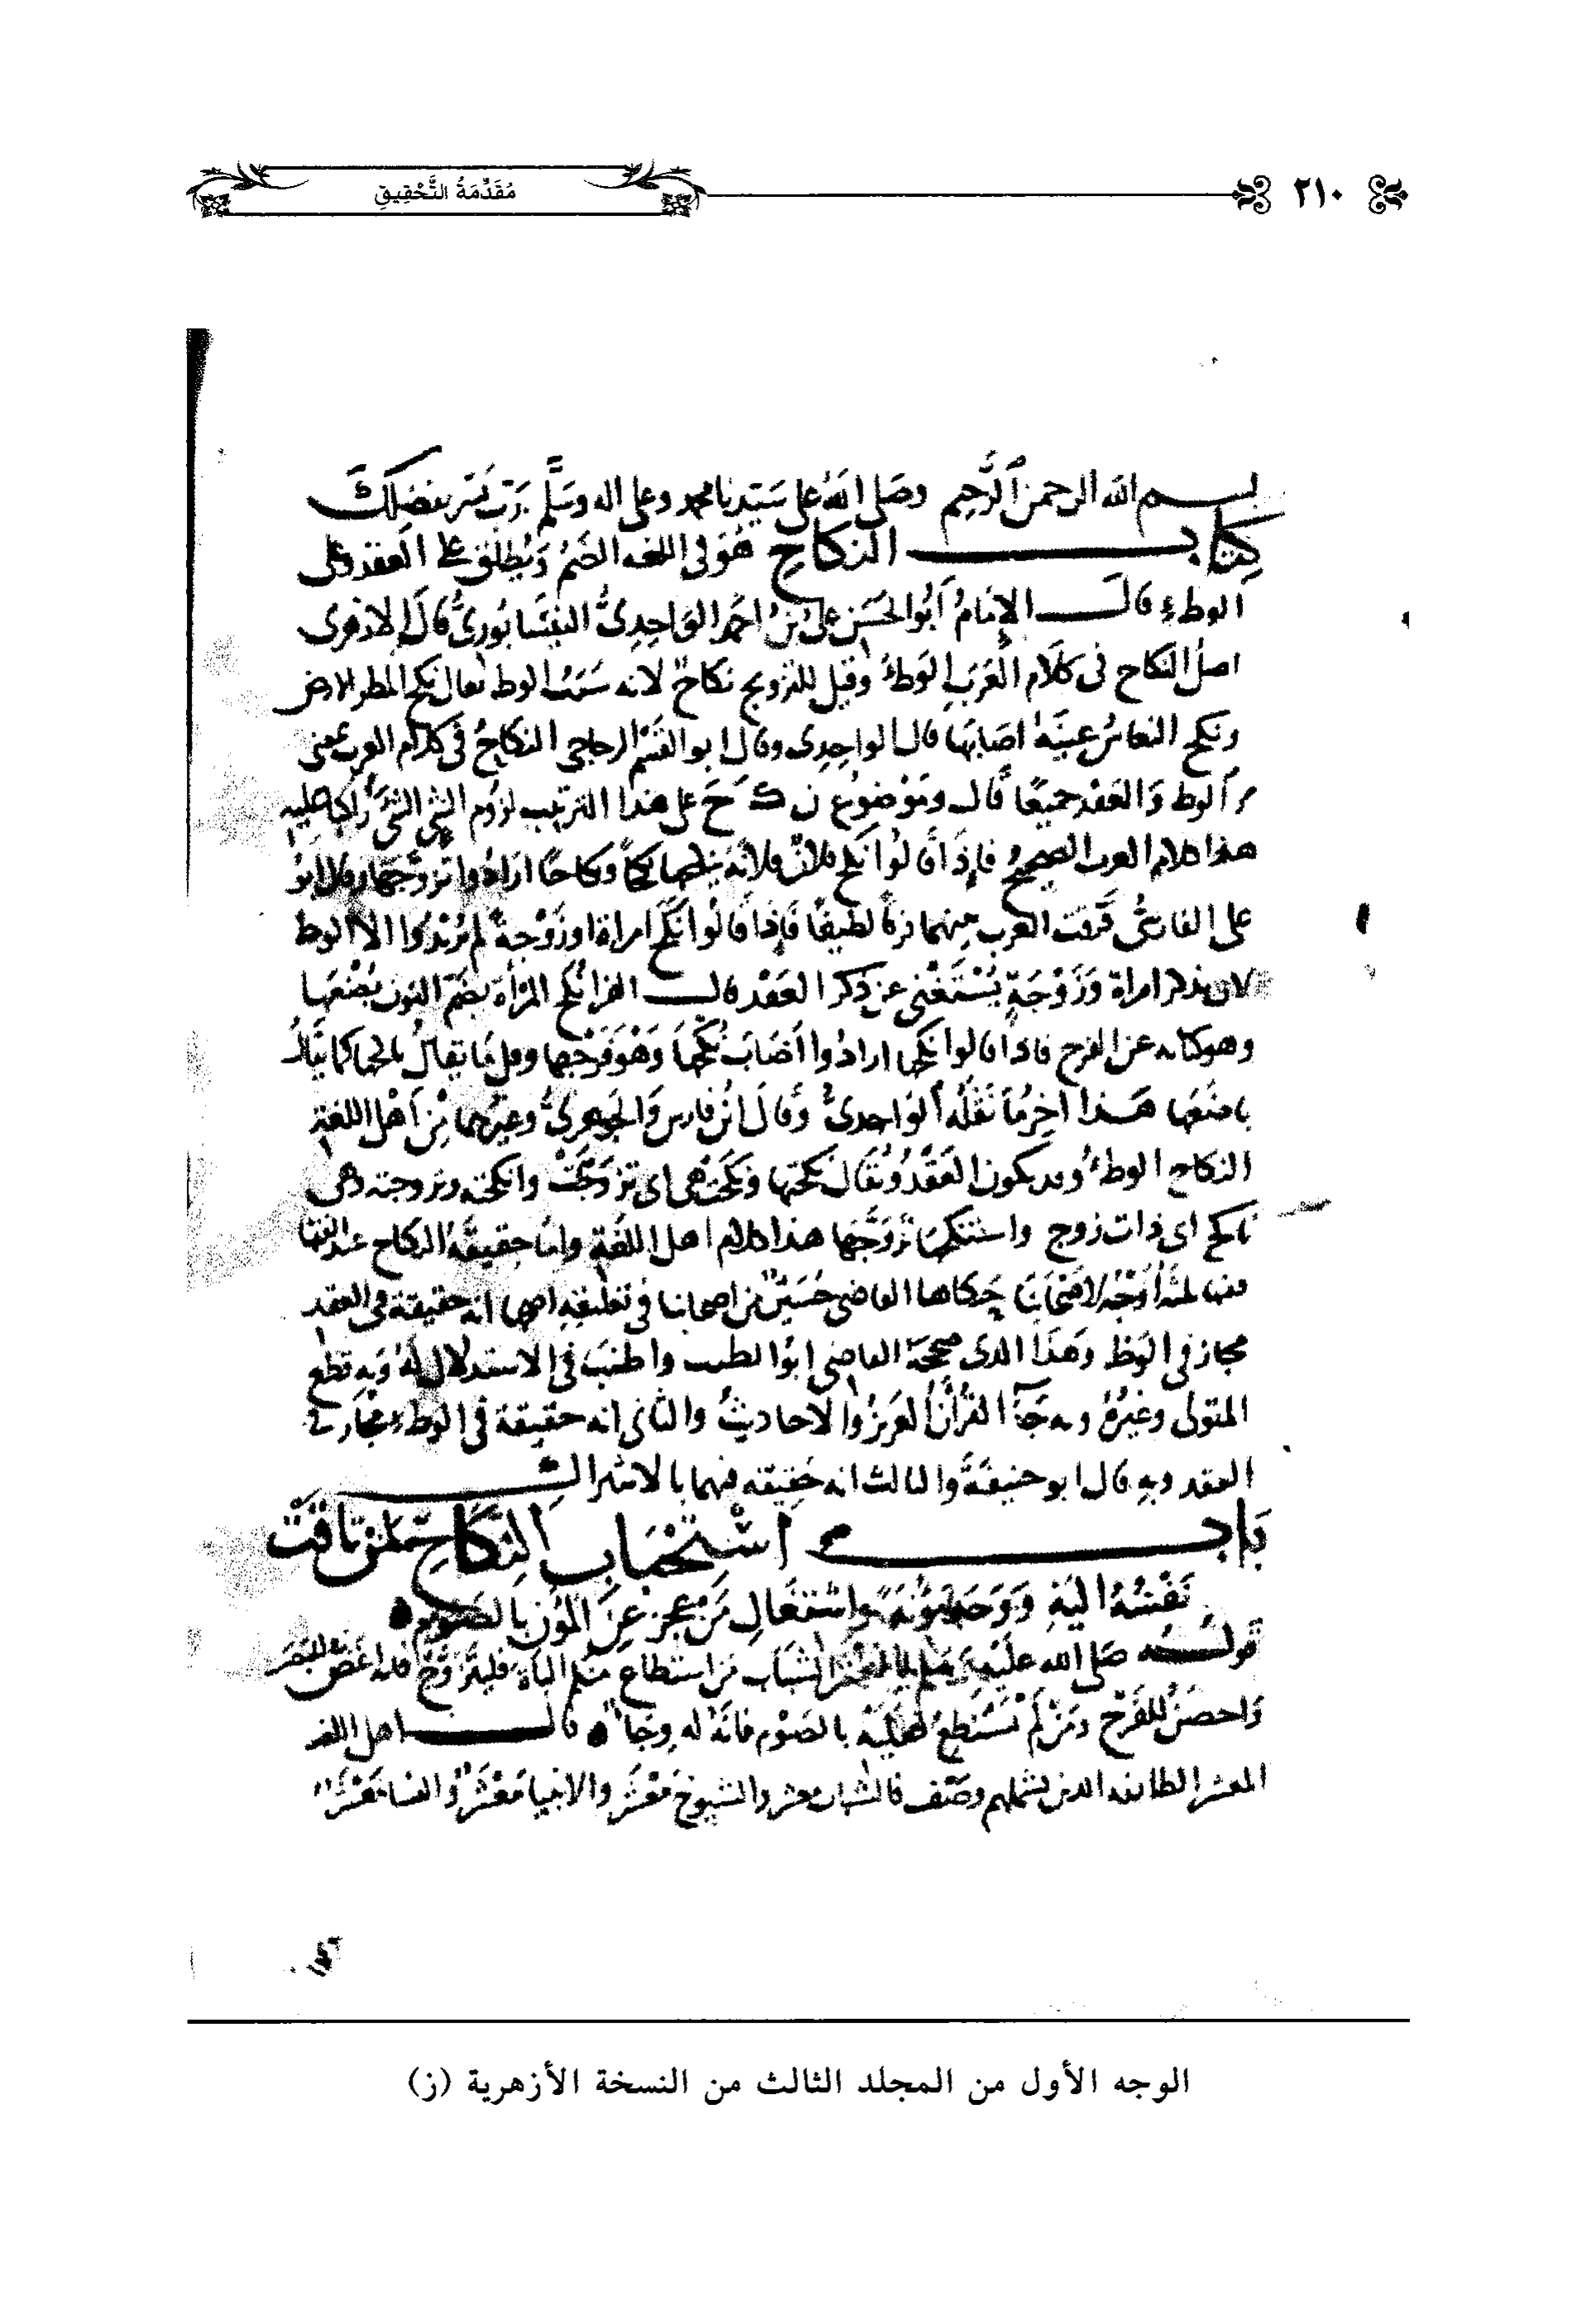 ٢١٠
مُقَدِّمَةُ التَّحْقِيقِ
بسم الله الرحمن الرحيم وصلى الله على سيدنا محمد وعلى اله وسلم رب يسر بفضلك
كتاب النكاح هو في اللغه الضم ويطلق على العقد وعلى
الوطء قال الإمام أبو الحسن علي بن احمد الواحدي النيسابوري قال الازهري
اصل النكاح في كلام العرب الوطء وقيل للتزويج نكاح لانه سبب الوط يقال نكح المطر الارض
ونكح النعاس عينه اصابها قال الواحدي وقال ابو القسم الزجاجي النكاح في كلام العرب بمعنى
الوط والعقد جميعا قال وموضوع ن ك ح على هذا الترتيب لزوم الشي الشي راكبا عليه
هذا كلام العرب الصحيح فإذا قالوا نكح فلان فلانة ينكحها نكحا ونكاحا ارادوا تزوجها وقال ابو
علي الفارسي فرقت العرب بينهما فرقا لطيفا فإذا قالوا نكح امراة او زوجة لم يريدوا الا الوط
لان بذكر امراة وزوجة يستغنى عن ذكر العقد قال الفرا نكح المرأة بضم النون بضعها
وهو كناية عن الفرج فاذا قالوا نكحها ارادوا أصاب نكحها وهو فرجها وقل ما يقال ناكحها كما يقال
باضعها هذا اخر ما نقله الواحدي وقال ابن فارس والجوهري وغيرهما من اهل اللغة
النكاح الوطء وقد يكون العقد ويقال نكحتها ونكحت هي اي تزوجت وانكحته وزوجته وهي
ناكح اي ذات زوج واستنكحها تزوجها هذا كلام اهل اللغة واما حقيقة النكاح عند الفقها
ففيها ثلثة أوجه لاصحابنا حكاها القاضي حسين من اصحابنا في تعليقه اصحها انه حقيقة في العقد
مجاز في الوط وهذا الذي صححه القاضي ابوا الطيب واطنب في الاستدلال له وبه قطع
المتولي وغيره وبه جآ القرأن العزيز والاحاديث والثاني انه حقيقة في الوطء مجاز في
العقد وبه قال ابو حنيفة والثالث انه حقيقه فيهما بالاشتراك
باب استحباب النكاح لمن تاقت
نفسه اليه ووجد مؤنه واشتغال من عجز عن المؤن بالصوم
قوله صلى الله عليه وسلم يا معشر الشباب من استطاع منكم الباة فليتزوج فانه اغض للبصر
واحصن للفرج ومن لم يستطع فعليه بالصوم فانه له وجا قال اهل اللغه
المعشر الطائفه الذين يشملهم وصف فالشباب معشر والشيوخ معشر والانبيا معشر والنسا معشر
الوجه الأول من المجلد الثالث من النسخة الأزهرية (ز)